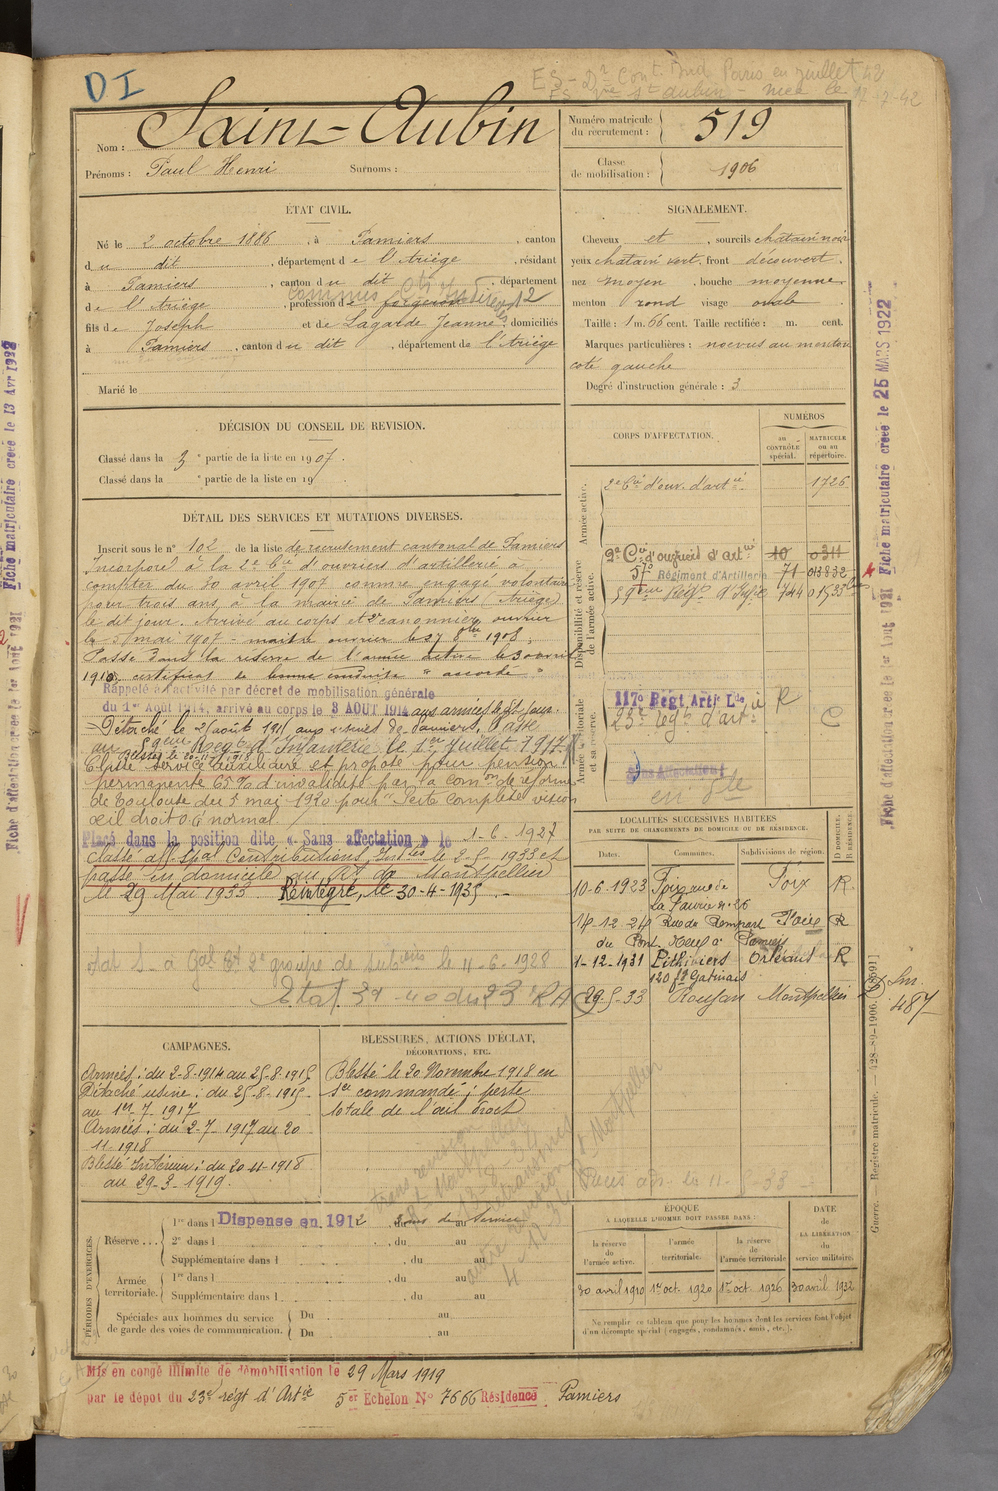 DI
ES - D² Cont. Ind. Paris en juillet 42
Nom : Saint-Aubin
Prénoms : Paul Henri Surnoms :
Numéro matricule du recrutement : 519
Classe de mobilisation : 1906
ÉTAT CIVIL.
Né le 2 octobre 1886, à Pamiers, canton
du dit, département de l'Ariège, résidant
à Pamiers, canton du dit, département
de l'Ariège, profession de forgeron
commis Ctions Indirectes
fils de Joseph et de Lagarde Jeanne, domiciliés
à Pamiers, canton du dit, département de l'Ariège
Marié le
SIGNALEMENT.
Cheveux et, sourcils chatain noir
yeux chatain vert, front découvert,
nez moyen, bouche moyenne
menton rond visage ovale
Taille : 1 m. 66 cent. Taille rectifiée : m. cent.
Marques particulières : noevus au menton
coté gauche
Degré d'instruction générale : 3
DÉCISION DU CONSEIL DE REVISION.
Classé dans la 3e partie de la liste en 1907.
Classé dans la e partie de la liste en 19
DÉTAIL DES SERVICES ET MUTATIONS DIVERSES.
Inscrit sous le n° 102 de la liste de recrutement cantonal de Pamiers
Incorporé à la 2e Cie d'ouvriers d'artillerie à
compter du 30 avril 1907 comme engagé volontaire
pour trois ans à la mairie de Pamiers (Ariège)
le dit jour. Arrivé au corps et 2e canonnier ouvrier
le 3 mai 1907 - maitre ouvrier le 27 8bre 1908.
Passé dans la réserve de l'armée active le 30 avril
1910, certificat de bonne conduite "accordé"
Rappelé à l'activité par décret de mobilisation générale
du 1er Août 1914, arrivé au corps le 3 AOUT 1914 aux armées le dit jour.
Détaché le 25 août 1915 aux usines de Pamiers. Passé
au 59eme Regt d'Infanterie le 1er Juillet 1917.
Blessé le 20-11-1918
Classé service auxiliaire et proposé pour pension
permanente 65% d'invalidité par la comon de réforme
de Toulouse du 5 mai 1920 pour "Perte complète vision
œil droit OG normal.
Placé dans la position dite « Sans affectation » le 1-6-1927
Classé aff. spal Contributions Indtes le 2-5-1933 et
passé en domicile au RT de Montpellier
le 29 Mai 1933 Réintégré, le 30-4-1935.
le 11-6-1928
CORPS D'AFFECTATION.
NUMÉROS
au CONTRÔLE spécial.
MATRICULE ou au répertoire.
Armée active.
2e Cie d'ouv. d'artie. 1726
Disponibilité et réserve de l'armée active.
2e Cie d'ouvriers d'artie 10 0311
57e Régiment d'Artillerie 71 013832
59eme Regt d'Infie 744 01535
Armée territoriale et sa réserve.
117e Regt Artie Lde R
23e regt d'artie C
Sans Affectation
LOCALITÉS SUCCESSIVES HABITÉES
PAR SUITE DE CHANGEMENTS DE DOMICILE OU DE RÉSIDENCE.
Dates. Communes. Subdivisions de région. D DOMICILE. R RÉSIDENCE.
10-6-1923 Foix rue de la Faurie n° 26 Foix R
14-12-24 Rue du Rempart du Pont Neuf à Pamiers Foix R
1-12-1931 Pithiviers 120 fg Gatinais Orléans R
29-5-33 Roujan Montpellier
CAMPAGNES.
Armées : du 2-8-1914 au 25-8-1915
Détaché usine : du 25-8-1915
au 1er 7-1917
Armées : du 2-7-1917 au 20
11-1918
Blessé Intérieur : du 20-11-1918
au 29-3-1919.
BLESSURES, ACTIONS D'ÉCLAT,
DÉCORATIONS, ETC.
Blessé le 20 Novembre 1918 en
sce commandé ; perte
totale de l'œil droit
PÉRIODES D'EXERCICES.
Réserve... 1re dans l Dispense en 1912
2e dans l , du au
Supplémentaire dans l , du au
Armée territoriale. 1re dans l , du au
Supplémentaire dans l , du au
Spéciales aux hommes du service Du au
de garde des voies de communication. Du au
ÉPOQUE
A LAQUELLE L'HOMME DOIT PASSER DANS :
la réserve de l'armée active.
l'armée territoriale.
la réserve de l'armée territoriale
DATE de LA LIBÉRATION du service militaire.
30 avril 1910 1er oct. 1920 1er oct. 1926 30 avril 1932
Ne remplir ce tableau que pour les hommes dont les services font l'objet
d'un décompte spécial (engagés, condamnés, omis, etc.).
Mis en congé illimité de démobilisation le 29 Mars 1919
par le dépôt du 23e régt d'Artie 5er Echelon N° 7666 Résidence Pamiers
Fiche matriculaire créée le 25 MARS 1922
Fiche d'affectation créée le 1er Août 1921
Fiche matriculaire créée le 13 Avr 1922
Fiche d'affectation créée le 1er Août 1921
Guerre. — Registre matricule. — 428-89-1906. [2691]
487